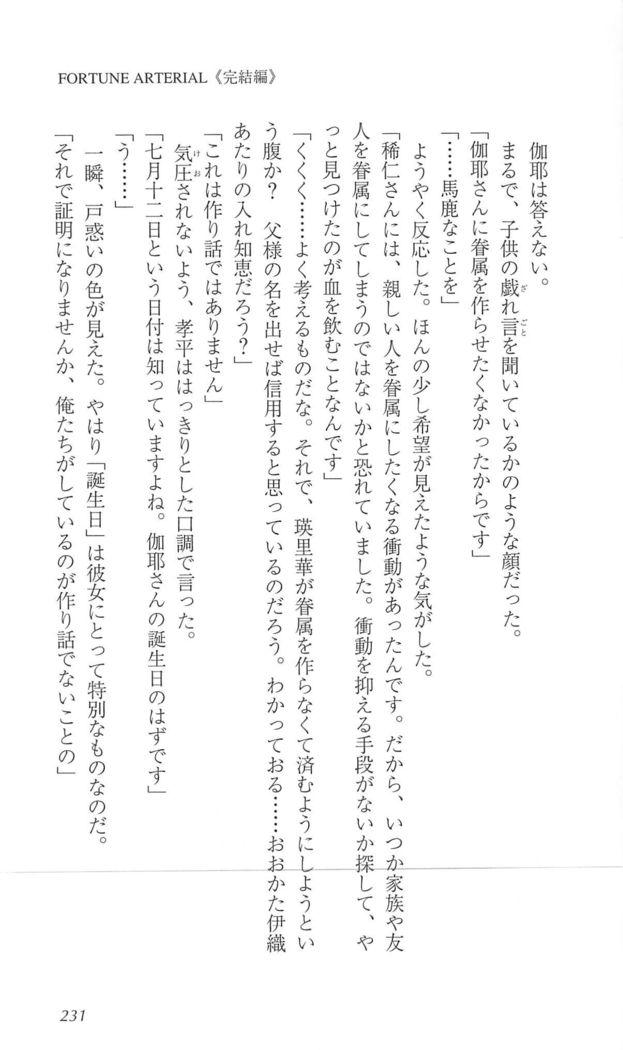 FORTUNE ARTERIAL《完結編》
伽耶は答えない。
まるで、子供の戯れ言を聞いているかのような顔だった。
「伽耶さんに眷属を作らせたくなかったからです」
「……馬鹿なことを」
ようやく反応した。ほんの少し希望が見えたような気がした。
「稀仁さんには、親しい人を眷属にしたくなる衝動があったんです。だから、いつか家族や友
人を眷属にしてしまうのではないかと恐れていました。衝動を抑える手段がないか探して、や
っと見つけたのが血を飲むことなんです」
「くくく……よく考えるものだな。それで、瑛里華が眷属を作らなくて済むようにしようとい
う腹か？　父様の名を出せば信用すると思っているのだろう。わかっておる……おおかた伊織
あたりの入れ知恵だろう？」
「これは作り話ではありません」
気圧されないよう、孝平ははっきりとした口調で言った。
「七月十二日という日付は知っていますよね。伽耶さんの誕生日のはずです」
「う……」
一瞬、戸惑いの色が見えた。やはり「誕生日」は彼女にとって特別なものなのだ。
「それで証明になりませんか、俺たちがしているのが作り話でないことの」
231